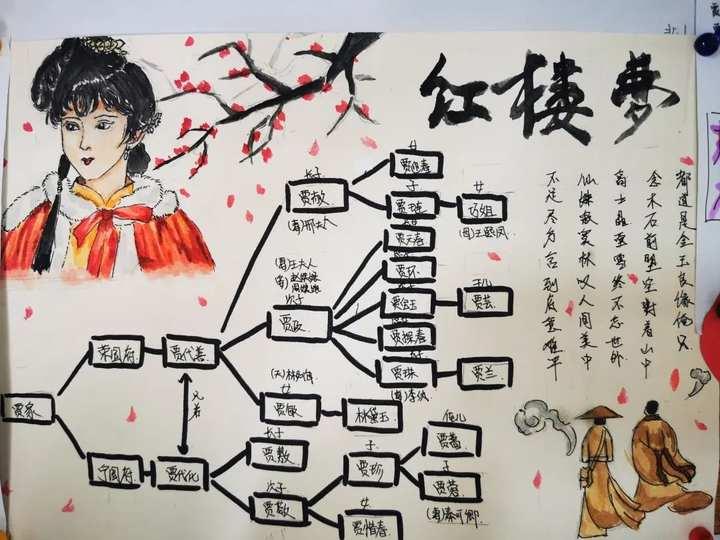 红楼夢
都道是金玉良缘俺只
念木石前盟空對着山中
高士晶莹雪终不忘世外
仙姝寂寞林叹人间美中
不足
到底意难平
贾家
荣国府
贾代善
兄弟
宁国府
贾代化
长子
贾赦
女
贾迎春
子
贾琏
女
巧姐
(母)王熙凤
王夫人
赵姨娘
周姨娘
次子
贾政
贾元春
贾环
贾宝玉
贾芸
贾探春
贾珠
李纨
贾兰
(夫)林如海
女
贾敏
林黛玉
长子
贾敷
次子
贾敬
子
贾珍
贾蔷
子
贾蓉
秦可卿
女
贾惜春